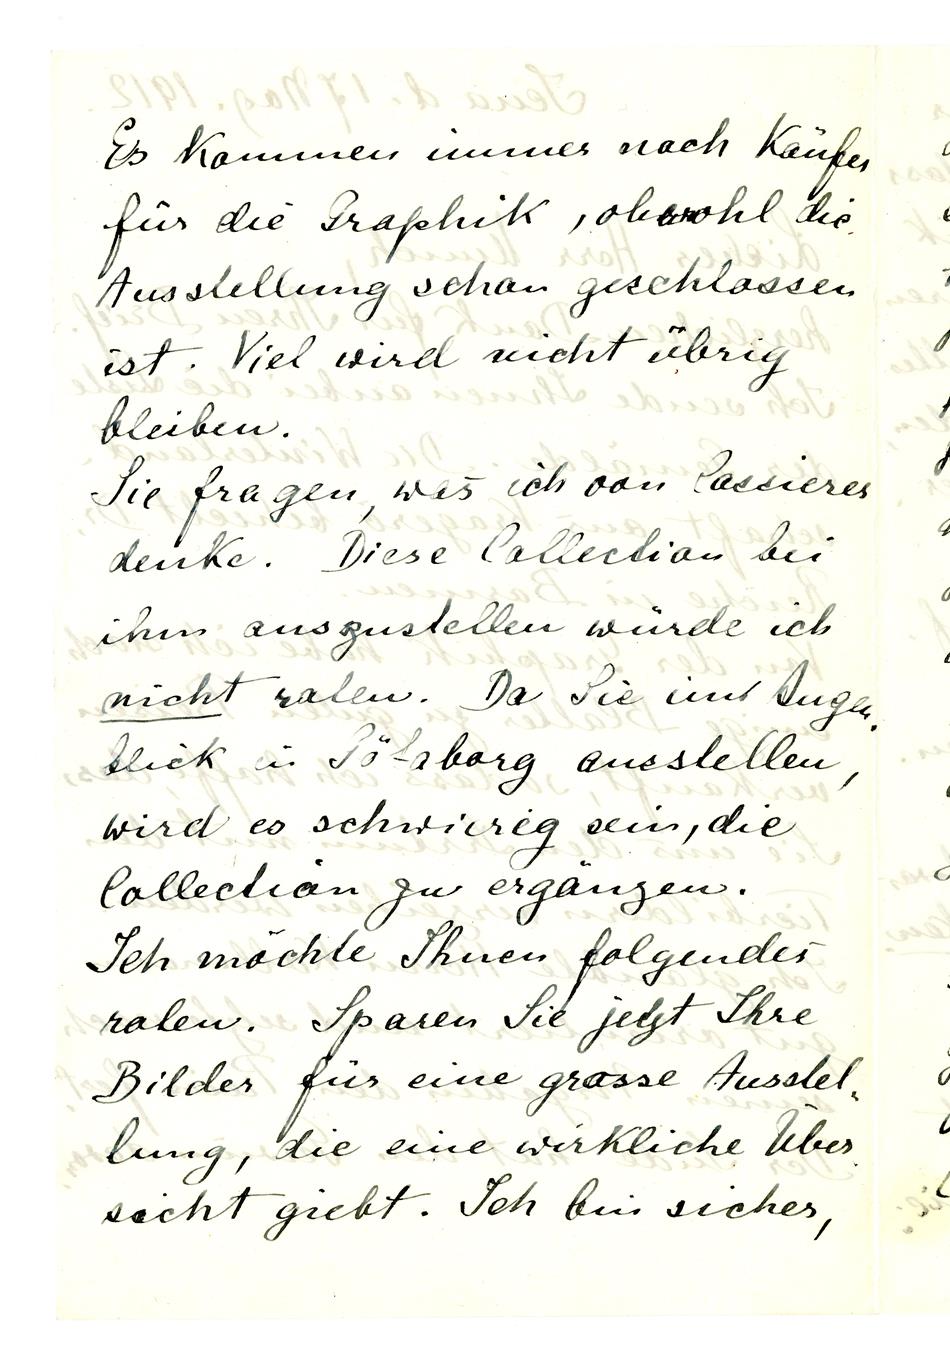 Es kommen immer noch Käufer
für die Graphik, obwohl die
Ausstellung schon geschlossen
ist. Viel wird nicht übrig
bleiben.
Sie fragen, was ich von Cassierer
denke. Diese Collection bei
ihm auszustellen würde ich
nicht raten. Da Sie im Augen-
blick in Göteborg ausstellen,
wird es schwierig sein, die
Collection zu ergänzen.
Ich möchte Ihnen folgendes
raten. Sparen Sie jetzt Ihre
Bilder für eine grosse Ausstel-
lung, die eine wirkliche Über
sicht giebt. Ich bin sicher,